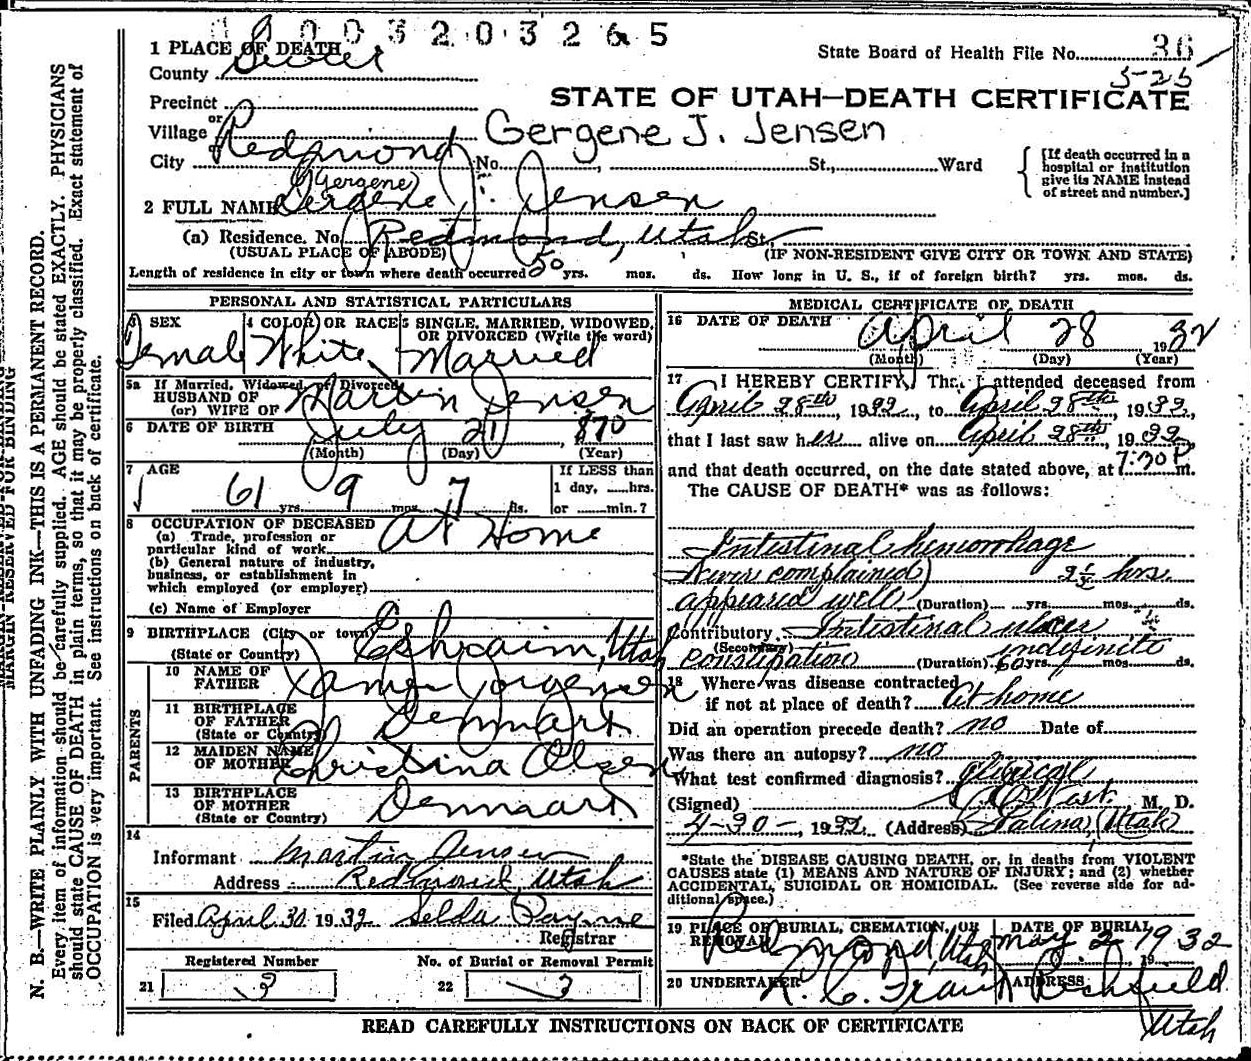 0 0 0 3 2 0 3 2 6 5
State Board of Health File No. 36
5-25
1 PLACE OF DEATH
County Sevier
STATE OF UTAH—DEATH CERTIFICATE
Precinct
or
Village or
Gergene J. Jensen
City Redmond No. St., Ward
[If death occurred in a hospital or institution give its NAME instead of street and number.]
(Gergene)
2 FULL NAME Gergene J. Jensen
(a) Residence. No. Redmond, Utah St.,
(USUAL PLACE OF ABODE) (IF NON-RESIDENT GIVE CITY OR TOWN AND STATE)
Length of residence in city or town where death occurred 50 yrs. mos. ds. How long in U. S., if of foreign birth? yrs. mos. ds.
PERSONAL AND STATISTICAL PARTICULARS
3 SEX 4 COLOR OR RACE 5 SINGLE, MARRIED, WIDOWED, OR DIVORCED (Write the word)
Female White Married
5a If Married, Widowed, or Divorced
HUSBAND OF
(or) WIFE OF Martin Jensen
6 DATE OF BIRTH July 21, 1870
(Month) (Day) (Year)
7 AGE If LESS than
1 day, hrs.
61 yrs. 9 mos. 7 ds. or min.?
8 OCCUPATION OF DECEASED
(a) Trade, profession or
particular kind of work At Home
(b) General nature of industry,
business, or establishment in
which employed (or employer)
(c) Name of Employer
9 BIRTHPLACE (City or town) Ephraim, Utah
(State or Country)
PARENTS
10 NAME OF
FATHER James Jorgensen
11 BIRTHPLACE
OF FATHER Denmark
(State or Country)
12 MAIDEN NAME
OF MOTHER Christina Olsen
13 BIRTHPLACE
OF MOTHER Denmark
(State or Country)
14
Informant Martin Jensen
Address Redmond, Utah
15
Filed April 30 1932 Selda Payne
Registrar
Registered Number No. of Burial or Removal Permit
21 3 22 3
MEDICAL CERTIFICATE OF DEATH
16 DATE OF DEATH April 28 1932
(Month) (Day) (Year)
17 I HEREBY CERTIFY, That I attended deceased from
April 28th, 1932, to April 28th, 1932,
that I last saw her alive on April 28th, 1932,
and that death occurred, on the date stated above, at 7:30 P m.
The CAUSE OF DEATH* was as follows:
Intestinal hemorrhage
Never complained) 2½ hrs.
appeared well (Duration) yrs. mos. ds.
Contributory Intestinal ulcer
(Secondary) indefinite
constipation (Duration) 60 yrs. mos. ds.
18 Where was disease contracted
if not at place of death? At home
Did an operation precede death? no Date of
Was there an autopsy? no
What test confirmed diagnosis? clinical
(Signed) West. M. D.
4-30-, 1932 (Address) Salina, (Utah)
*State the DISEASE CAUSING DEATH, or, in deaths from VIOLENT
CAUSES state (1) MEANS AND NATURE OF INJURY; and (2) whether
ACCIDENTAL, SUICIDAL OR HOMICIDAL. (See reverse side for ad-
ditional space.)
19 PLACE OF BURIAL, CREMATION, OR REMOVAL DATE OF BURIAL
Redmond, Utah May 2 1932
20 UNDERTAKER ADDRESS
Richfield
Utah
READ CAREFULLY INSTRUCTIONS ON BACK OF CERTIFICATE
MARGIN RESERVED FOR BINDING
N. B.—WRITE PLAINLY WITH UNFADING INK—THIS IS A PERMANENT RECORD.
Every item of information should be carefully supplied. AGE should be stated EXACTLY. PHYSICIANS
should state CAUSE OF DEATH in plain terms, so that it may be properly classified. Exact statement of
OCCUPATION is very important. See instructions on back of certificate.